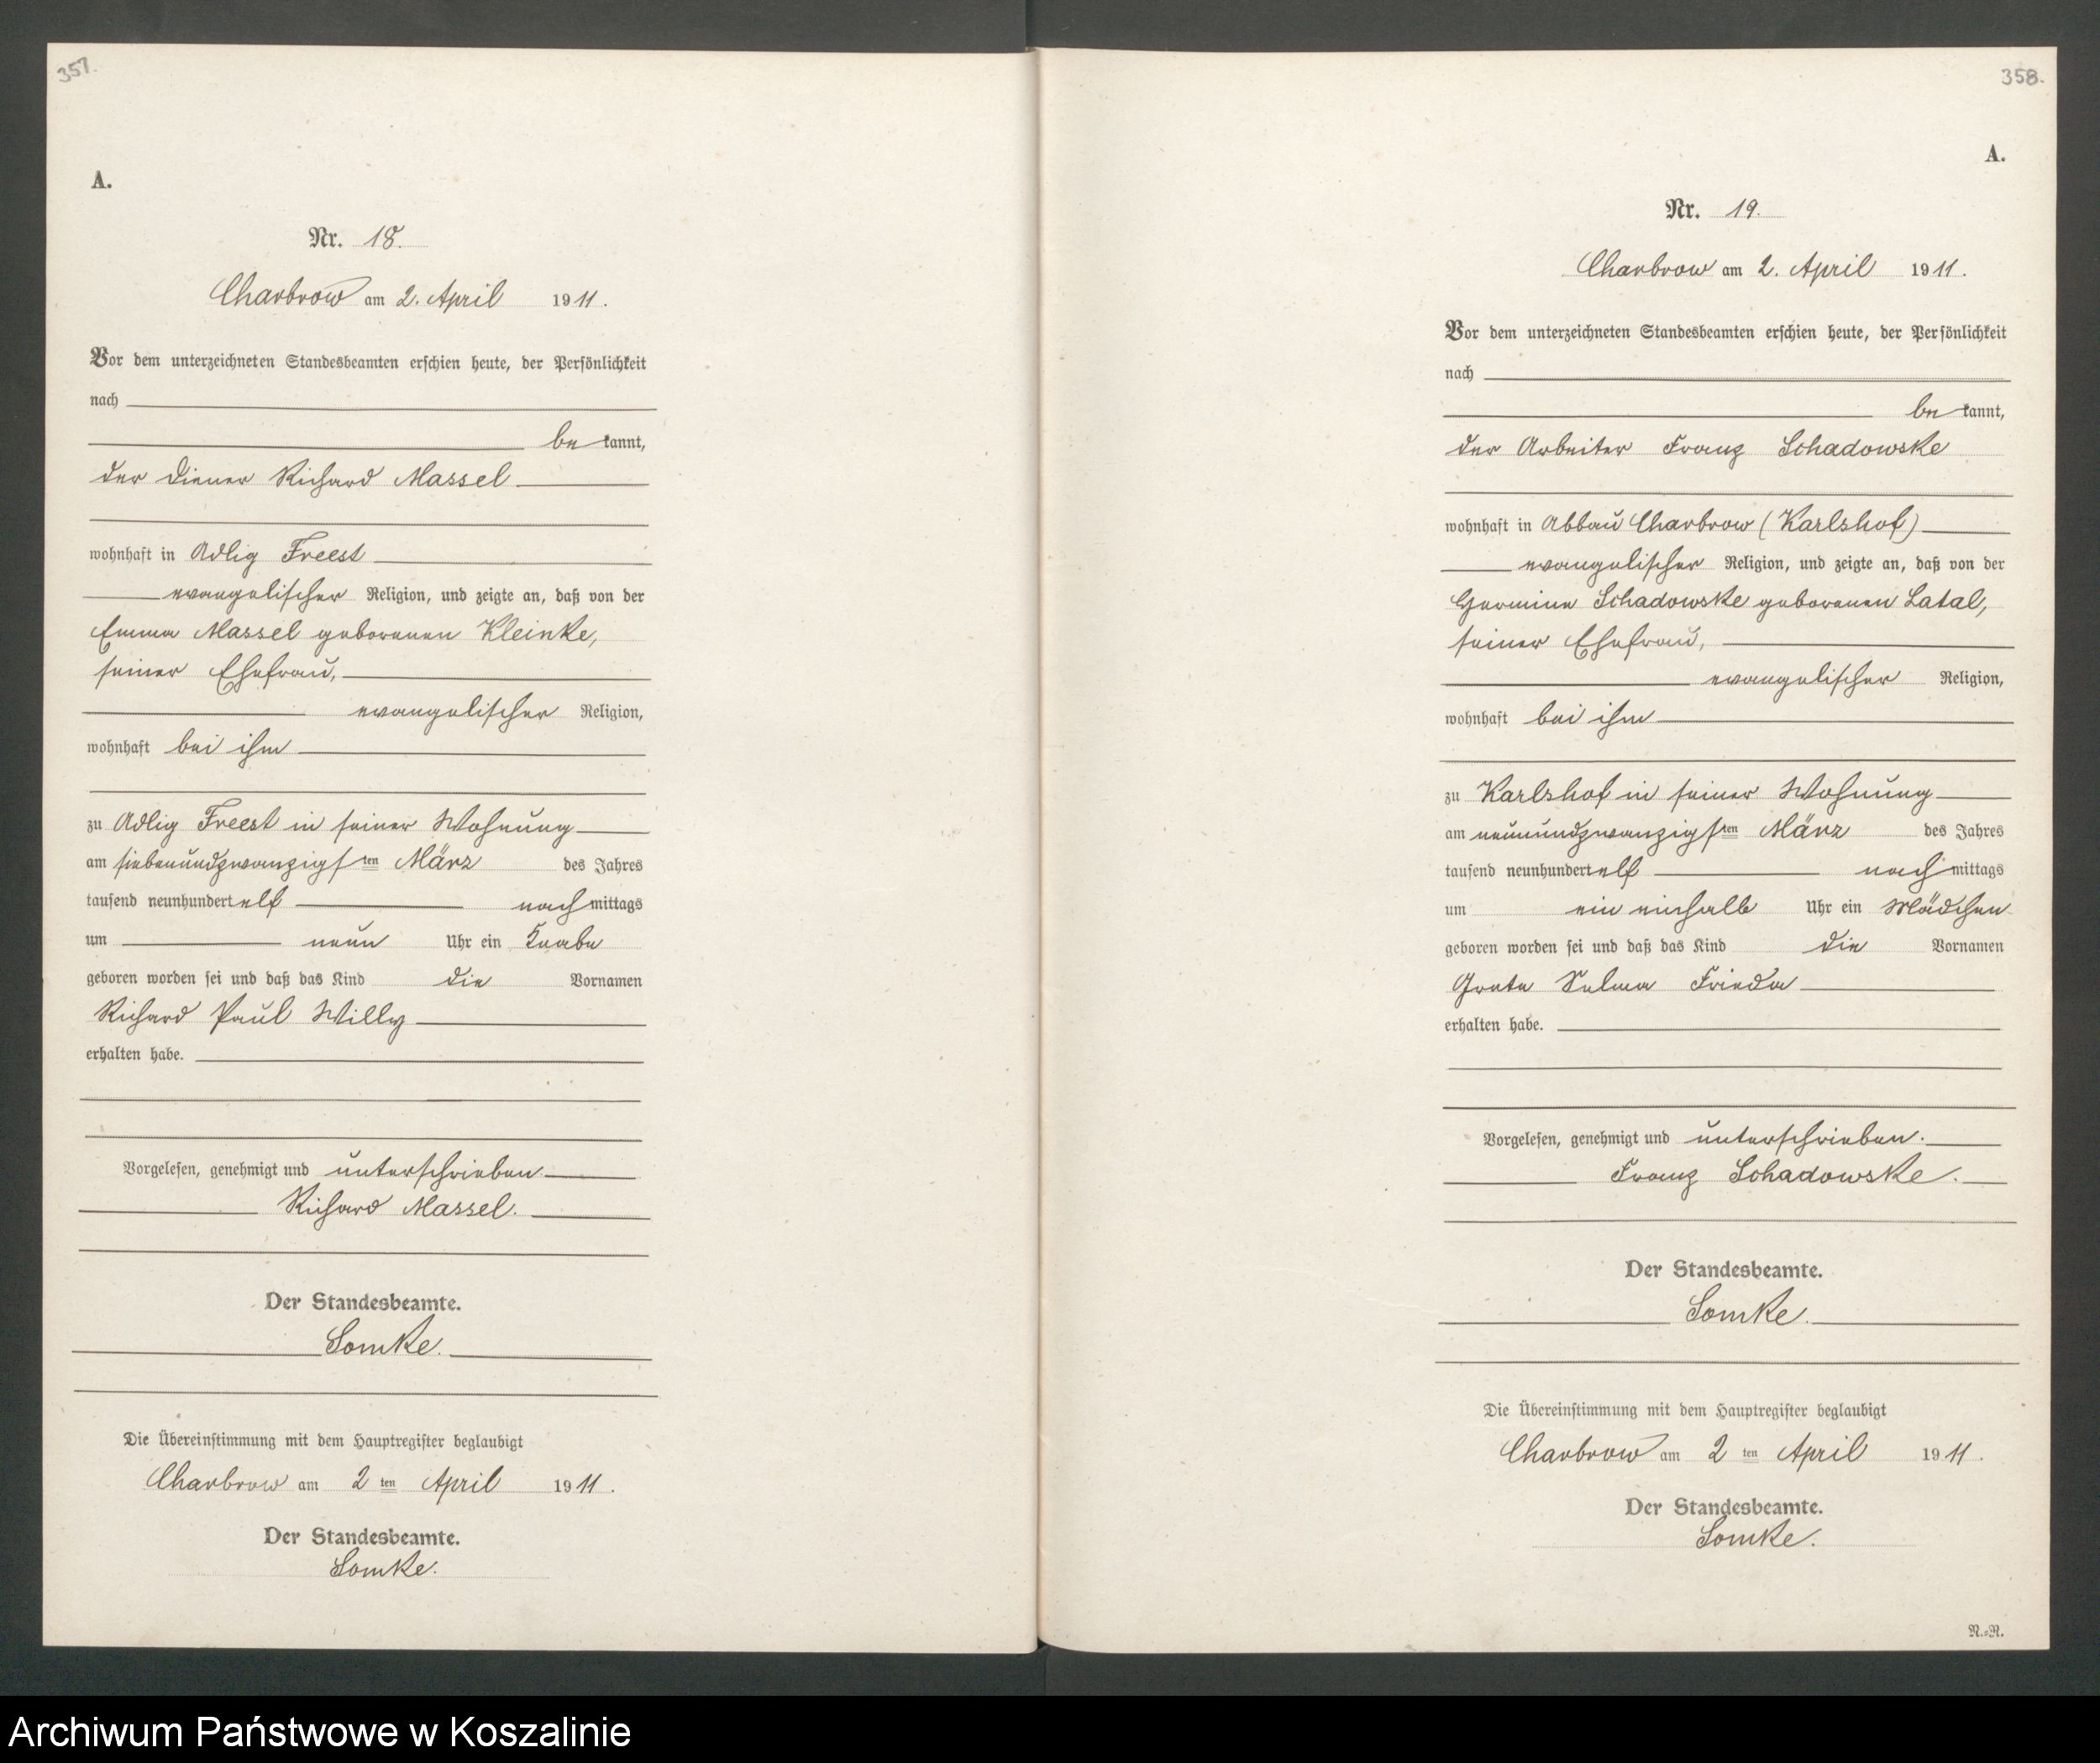 357.
A.
Nr. 18.
Charbrow am 2. April 1911.
Vor dem unterzeichneten Standesbeamten erschien heute, der Persönlichkeit
nach
be kannt,
der Diener Richard Massel
wohnhaft in Adlig Freest
evangelischer Religion, und zeigte an, daß von der
Emma Massel geborenen Kleinke,
seiner Ehefrau,
evangelischer Religion,
wohnhaft bei ihm
zu Adlig Freest in seiner Wohnung
am siebenundzwanzigsten März des Jahres
tausend neunhundert elf nachmittags
um neun Uhr ein Knabe
geboren worden sei und daß das Kind die Vornamen
Richard Paul Willy
erhalten habe.
Vorgelesen, genehmigt und unterschrieben.
Richard Massel.
Der Standesbeamte.
Somke.
Die Übereinstimmung mit dem Hauptregister beglaubigt
Charbrow am 2ten April 1911.
Der Standesbeamte.
Somke.
358.
A.
Nr. 19.
Charbrow am 2. April 1911.
Vor dem unterzeichneten Standesbeamten erschien heute, der Persönlichkeit
nach
be kannt,
der Arbeiter Franz Schadowske
wohnhaft in Abbau Charbrow (Karlshof)
evangelischer Religion, und zeigte an, daß von der
Schadowske geborenen Latal,
seiner Ehefrau,
evangelischer Religion,
wohnhaft bei ihm
zu Karlshof in seiner Wohnung
am neunundzwanzigsten März des Jahres
tausend neunhundert elf nachmittags
um ein einhalb Uhr ein Mädchen
geboren worden sei und daß das Kind die Vornamen
Grete Selma Frieda
erhalten habe.
Vorgelesen, genehmigt und unterschrieben.
Franz Schadowske.
Der Standesbeamte.
Somke.
Die Übereinstimmung mit dem Hauptregister beglaubigt
Charbrow am 2ten April 1911.
Der Standesbeamte.
Somke.
N.=R.
Archiwum Państwowe w Koszalinie